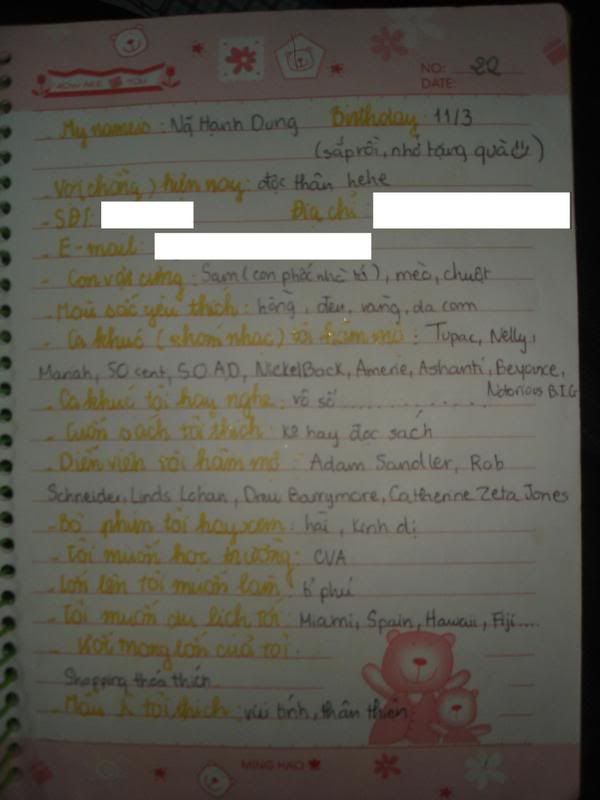 HOW ARE YOU
NO: 22
DATE:
- My name is : Ng̃ Hạnh Dung Birthday : 11/3
(sắp rồi, nhớ tặng quà)
- Vợ (chồng) hiện nay : độc thân hehe
- SĐT: Địa chỉ
- E-mail:
- Con vật cưng : Sam (con phốc nhà tớ), mèo, chuột
- Màu sắc yêu thích : hồng, đen, vàng, da cam
- Ca khúc (nhóm nhạc) tôi hâm mộ : Tupac, Nelly,
Mariah, 50 cent, S.O.A.D, NickelBack, Amerie, Ashanti, Beyonce,
Notorious B.I.G
- Ca khúc tôi hay nghe : vô số
- Cuốn sách tôi thích : kô hay đọc sách
- Diễn viên tôi hâm mộ : Adam Sandler, Rob
Schneider, Linds Lohan, Drew Barrymore, Catherine Zeta Jones
- Bộ phim tôi hay xem : hài, kinh dị
- Tôi muốn học trường : CVA
- Lớn lên tôi muốn làm : tỉ phú
- Tôi muốn du lịch tới : Miami, Spain, Hawaii, Fiji....
- Ước mong lớn của tôi :
Shopping thoả thích
- Mẫu  tôi thích : vui tính, thân thiện
MING HAO